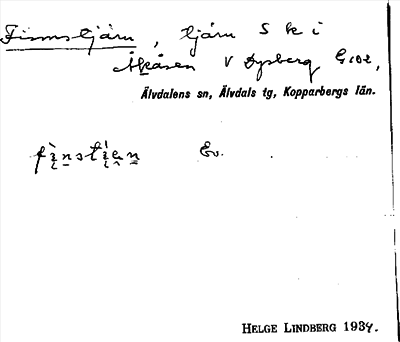 Finnstjärn, tjärn S k i
Åkåsen V Dysberg G102,
Älvdalens sn, Älvdals tg, Kopparbergs län.
fìnstí̀en Ev.
HELGE LINDBERG 1934.